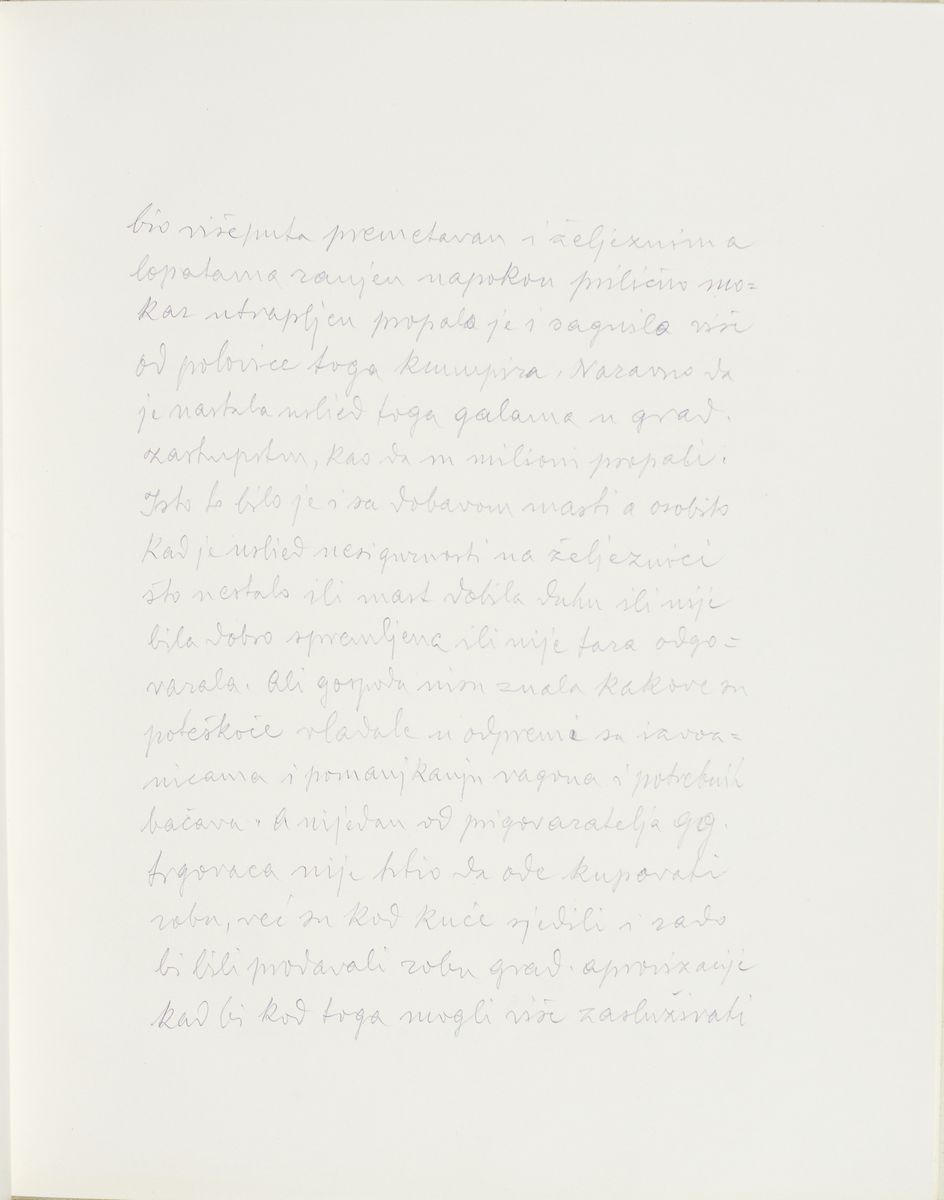 bio višeputa premetavan i željeznima
lopatama ranjen napokon prilično mo=
kar utrapljen propala je i sagnila više
od polovice toga krumpira. Naravno da
je nastala uslied toga galama u grad.
zastupstvu, kao da su milioni propali.
Isto to bilo je i sa dobavom masti a osobito
kad je uslied nesigurnosti na željeznici
što nestalo ili mast dobila duhu ili nije
bila dobro spremljena ili nije tara odgo=
varala. Ali gospoda nisu znala kakove su
poteškoće vladale u odpremi sa izvoz=
nicama i pomanjkanju vagona i potrebnih
bačava. A nijedan od prigovaratelja gg.
trgovaca nije htio da ode kupovati
robu, već su kod kuće sjedili i rado
bi bili prodavali robu grad. aprovizacije
kad bi kod toga mogli više zasluživati